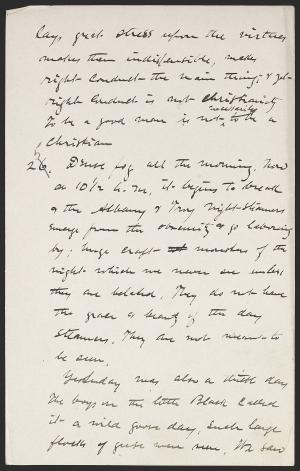 lays great stress upon the virtues
makes them indispensible, makes
right conduct the main thing, & yet
right conduct is not Christianity
necessarily
To be a good man is not to be a
Christian
26. Dense fog all the morning, now
at 10 1/2 A.M, it begins to break
& the Albany & Troy Night-steamers
emerge from the obscurity & go laboring
by; huge craft monsters of the
night which we never see unless
they are belated. They do not have
the grace & beauty of the day
steamers. They are not meant to
be seen.
Yesterday was also a still day
The boys on the little Black called
it a wild goose day, such large
flocks of geese were seen. We saw